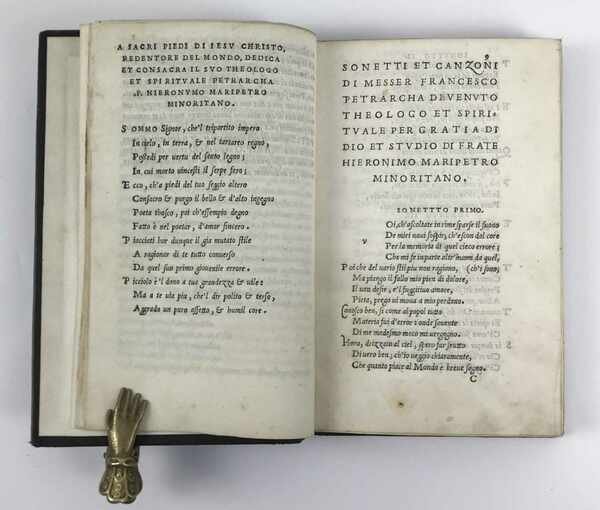 A SACRI PIEDI DI IESV CHRISTO,
REDENTORE DEL MONDO, DEDICA
ET CONSACRA IL SVO THEOLOGO
ET SPIRITVALE PETRARCHA
.F. HIERONYMO MARIPETRO
MINORITANO.
SOMMO Signor, che'l tripartito impero
In cielo, in terra, & nel tartareo regno,
Possedi per uertu del santo legno;
In cui morto uincesti il serpe fero;
Ecco, ch'a piedi del tuo seggio altero
Consacro & purgo il bello & d'alto ingegno
Poeta thosco, poi ch'essempio degno
Fatto è nel poetar, d'amar sincero.
Piacciati hor dunque il gia mutato stile
A ragionar di te tutto conuerso
Da quel suo primo giouenile errore.
Picciolo è'l dono a tua grandezza & uile:
Ma a te uia piu, che'l dir polito & terso,
Aggrada un puro affetto, & humil core.
9
SONETTI ET CANZONI
DI MESSER FRANCESCO
PETRARCHA DEVENVTO
THEOLOGO ET SPIRI-
TVALE PER GRATIA DI
DIO ET STVDIO DI FRATE
HIERONIMO MARIPETRO
MINORITANO.
SONETTTO PRIMO.
Oi, ch'ascoltate in rime sparse il suono
V
De miei noui sospir, ch'escon del core
Per la memoria di quel cieco errore;
Che mi fe in parte altr'huom da quel, (ch'i sono;
Poi che del uario stil piu non ragiono,
Ma piango il fallo mio pien di dolore,
Il uan desir, e'l fuggitiuo amore,
Pieta, prego ui moua a mio perdono.
Conosco ben, si come al popol tutto
Materia fui d'error: onde souente
Di me medesimo meco mi uergogno.
Hora, drizzato al ciel, spero far frutto
Di uero ben; ch'io ueggio chiaramente,
Che quanto piace al Mondo è breue sogno.
C